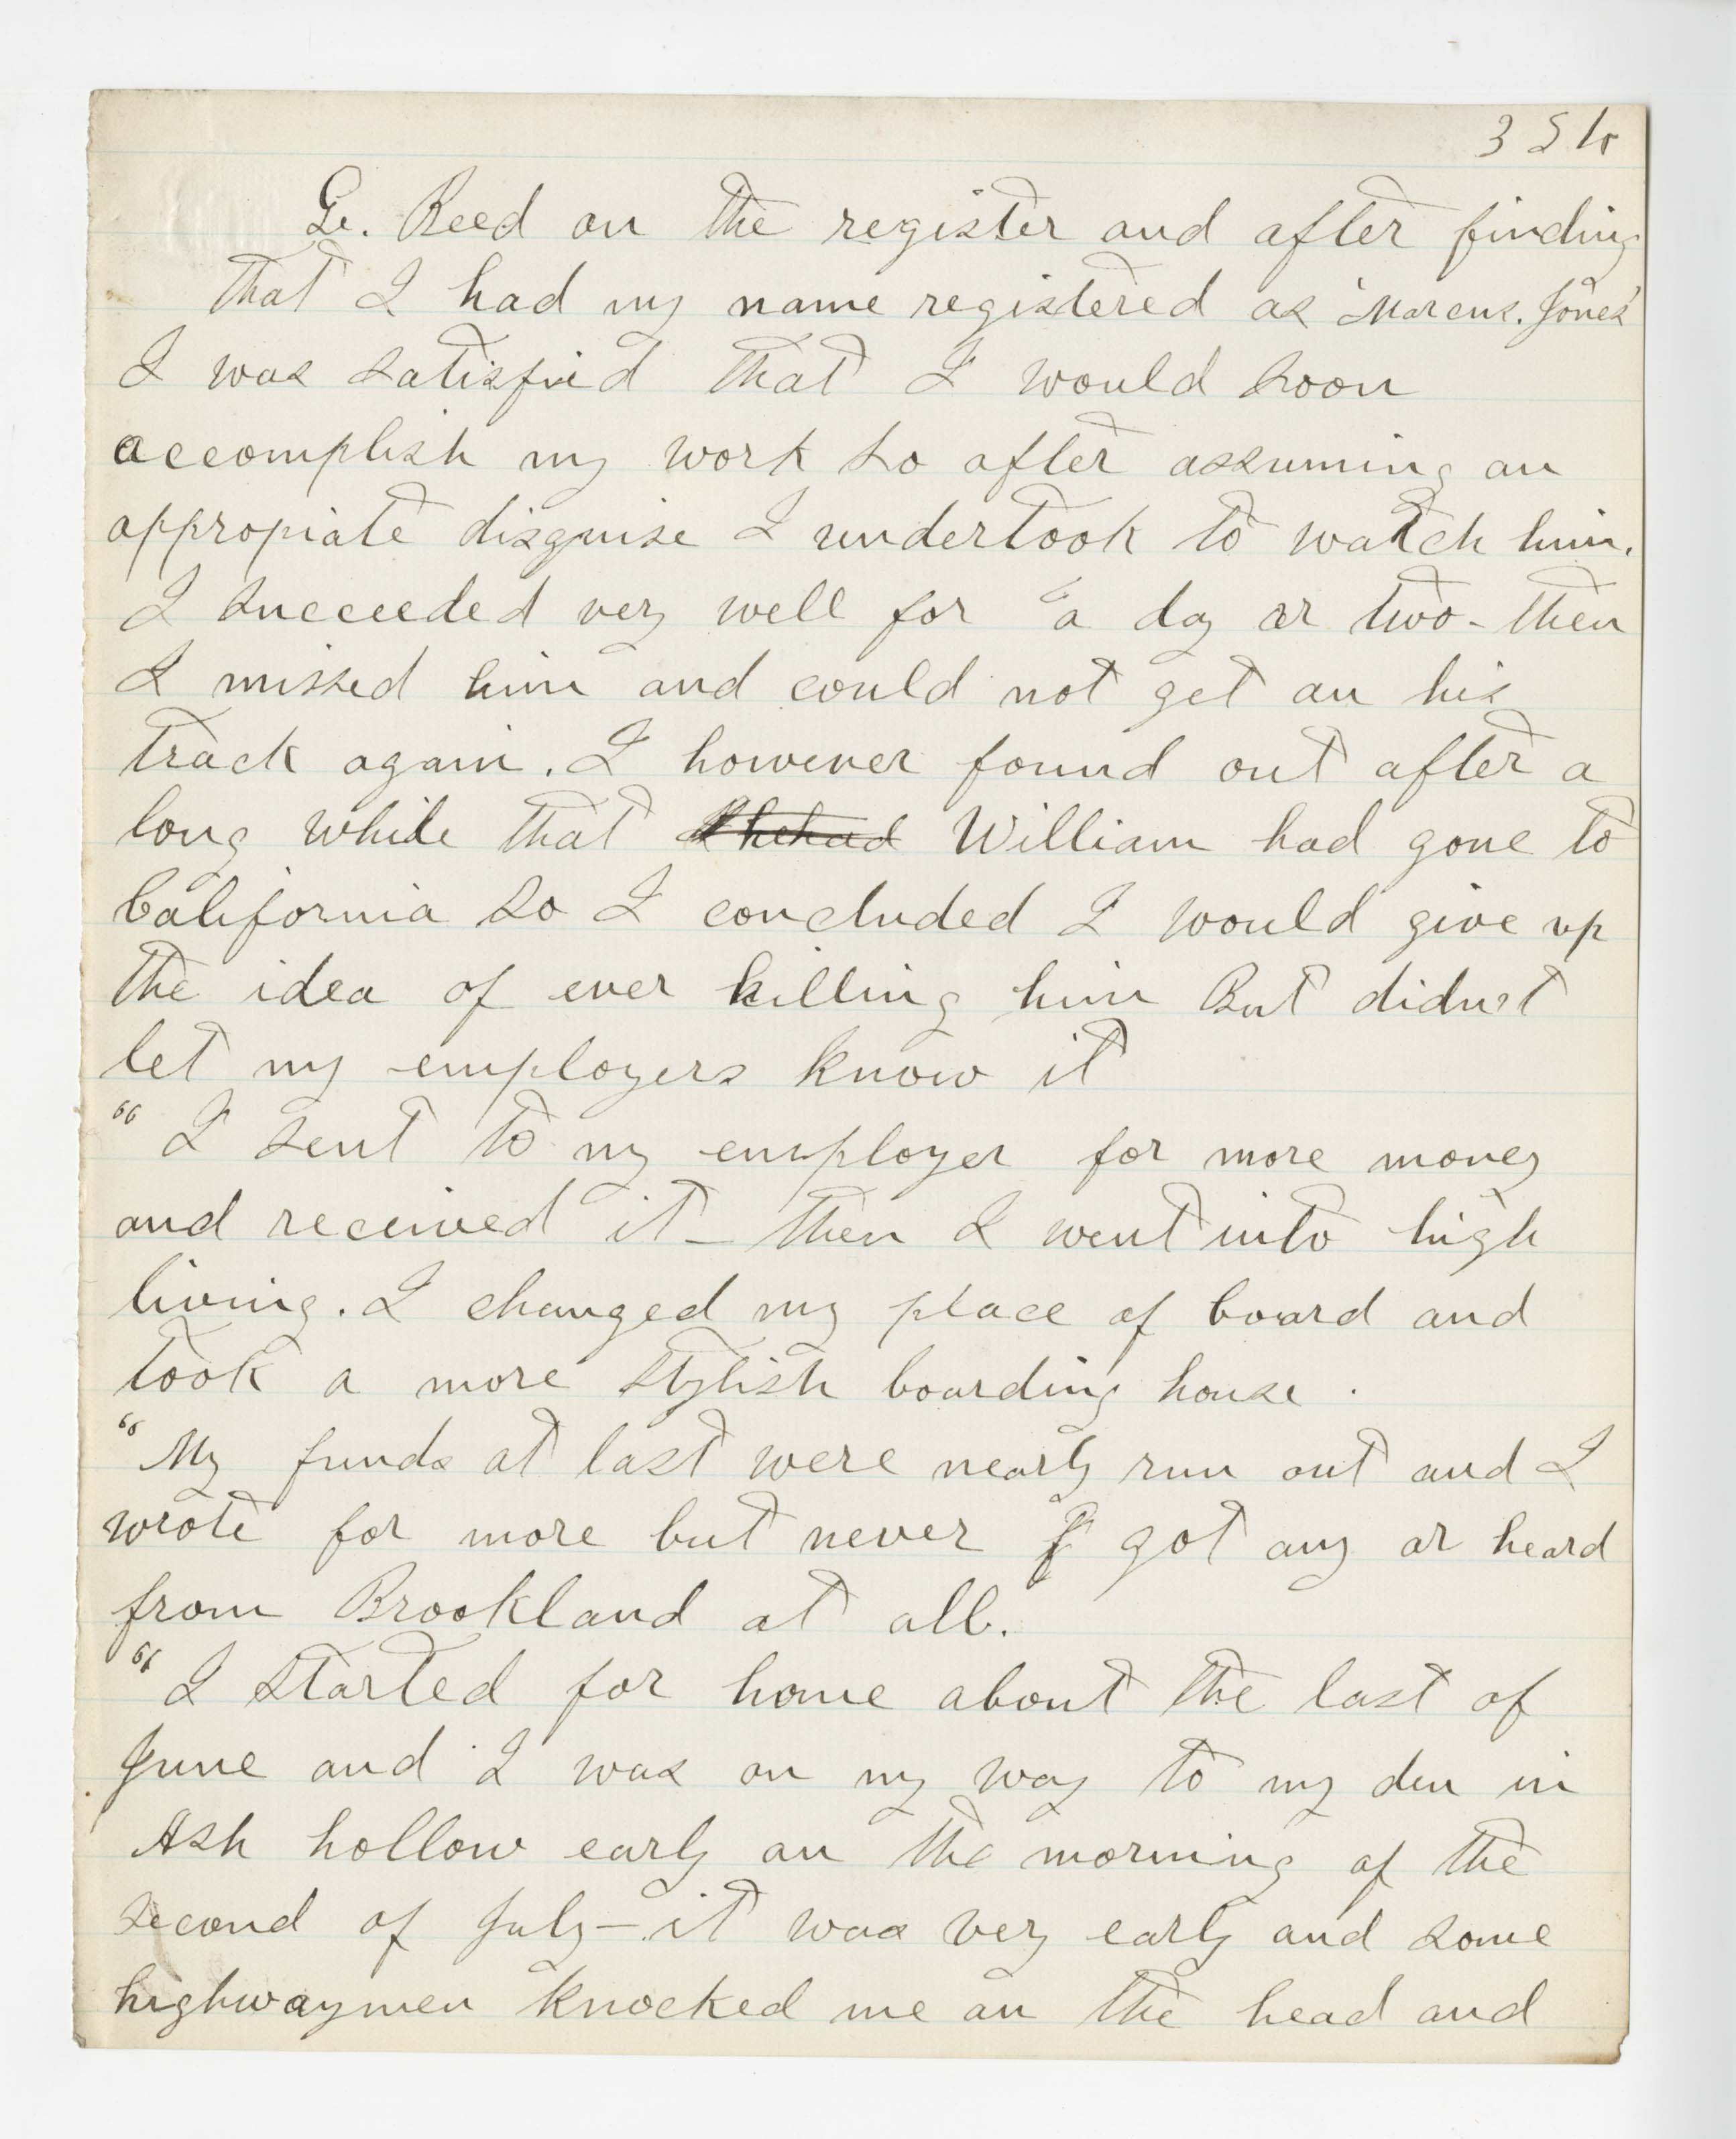 G. Reed on the register and after finding
that I had my name registered as 'Marcus. Jones'
I was satisfied that I would soon
accomplish my work so after assuming an
appropiate disguise I undertook to watch him.
I succeeded very well for a day or two - then
I missed him and could not get on his
track again. I however found out after a
long while that William had gone to
California so I concluded I would give up
the idea of ever killing him But didn't
let my employers know it
"I sent to my employer for more money
and received it - then I went into high
living. I changed my place of board and
took a more stylish boarding house.
"My funds at last were nearly run out and I
wrote for more but never I got any or heard
from Brookland at all.
"I started for home about the last of
June and I was on my way to my den in
Ash hollow early on the morning of the
second of July - it was very early and some
highwaymen knocked me on the head and